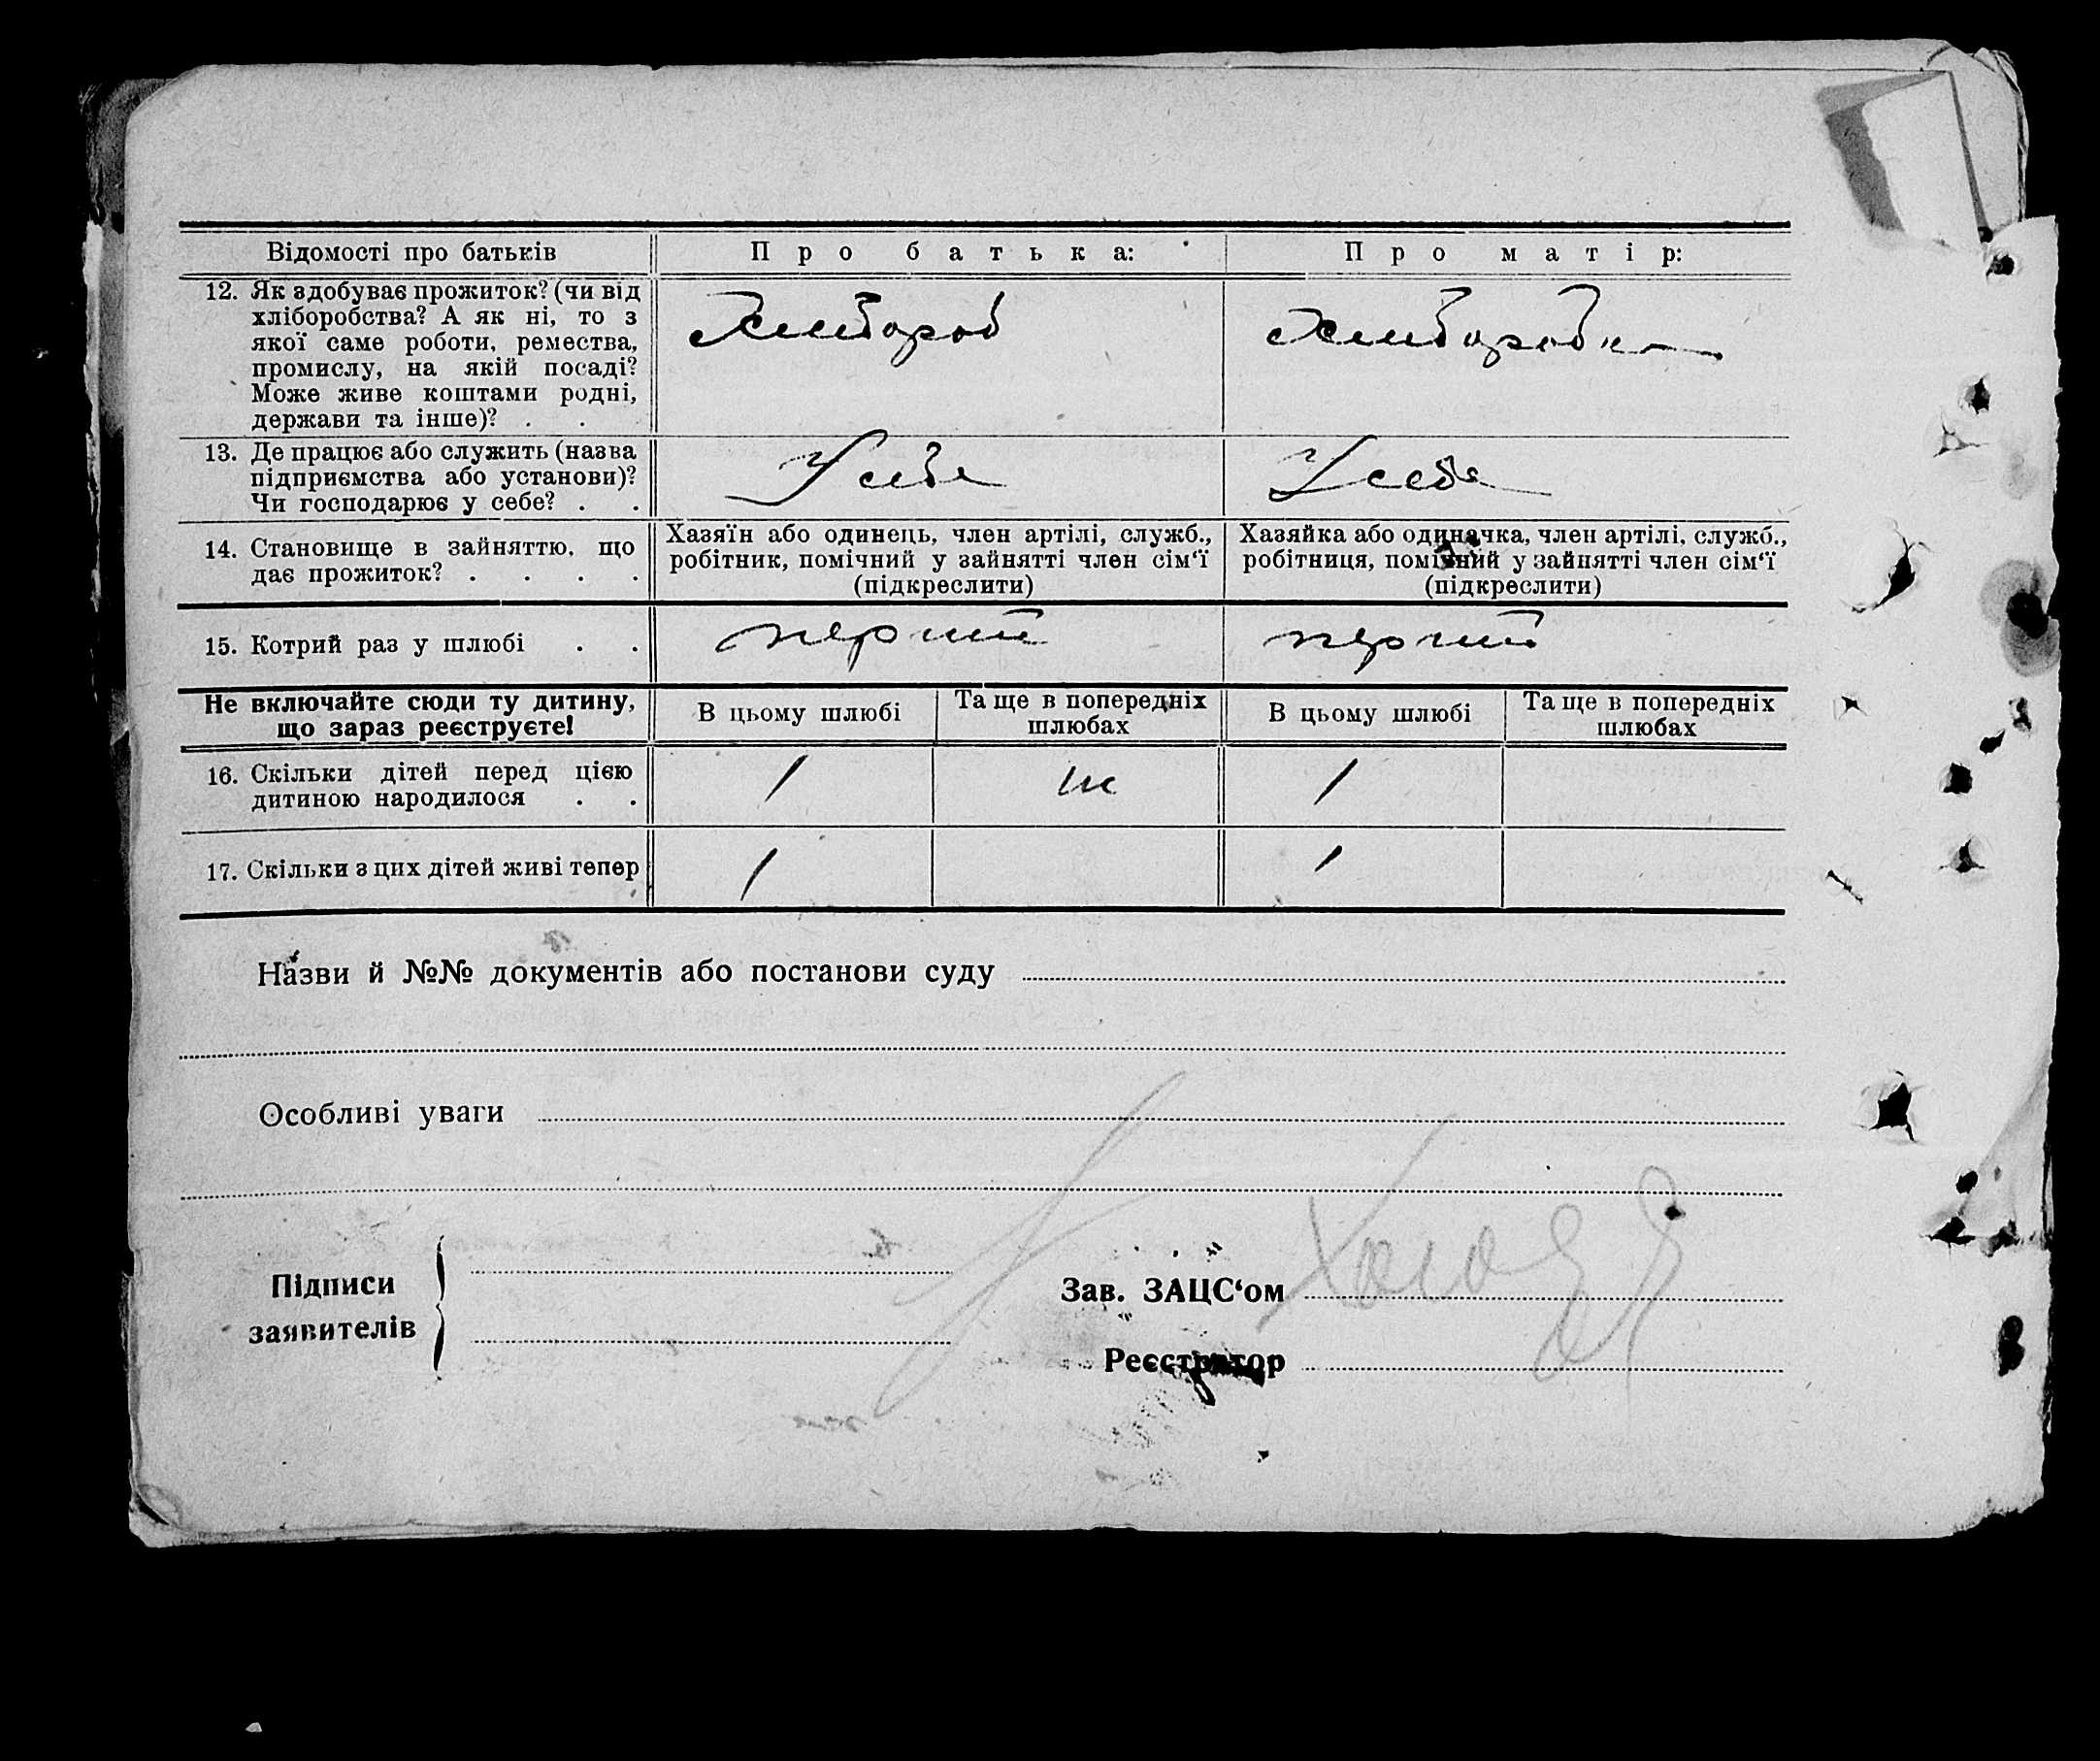 Відомості про батьків
Про батька:
Про матір:
12. Як здобуває прожиток? (чи від
хліборобства? А як ні, то з
якої саме роботи, ремества,
промислу, на якій посаді?
Може живе коштами родні,
держави та інше)? . . .
Хлибороб
Хлиборобка
13. Де працює або служить (назва
підприємства або установи)?
Чи господарює у себе? . .
У себе
У себе
14. Становище в зайняттю, що
дає прожиток? . . . .
Хазяїн або одинець, член артілі, служб.,
робітник, помічний у зайнятті член сім‘ї
(підкреслити)
Хазяйка або одиначка, член артілі, служб.,
робітниця, помічний у зайнятті член сім‘ї
(підкреслити)
15. Котрий раз у шлюбі . .
перший
перший
Не включайте сюди ту дитину,
що зараз реєструєте!
В цьому шлюбі
Та ще в попередніх
шлюбах
В цьому шлюбі
Та ще в попередніх
шлюбах
16. Скільки дітей перед цією
дитиною народилося . .
1
1
17. Скільки з цих дітей живі тепер
1
1
Назви й №№ документів або постанови суду
Особливі уваги
Підписи
заявителів
Зав. ЗАЦС‘ом
Реєстратор